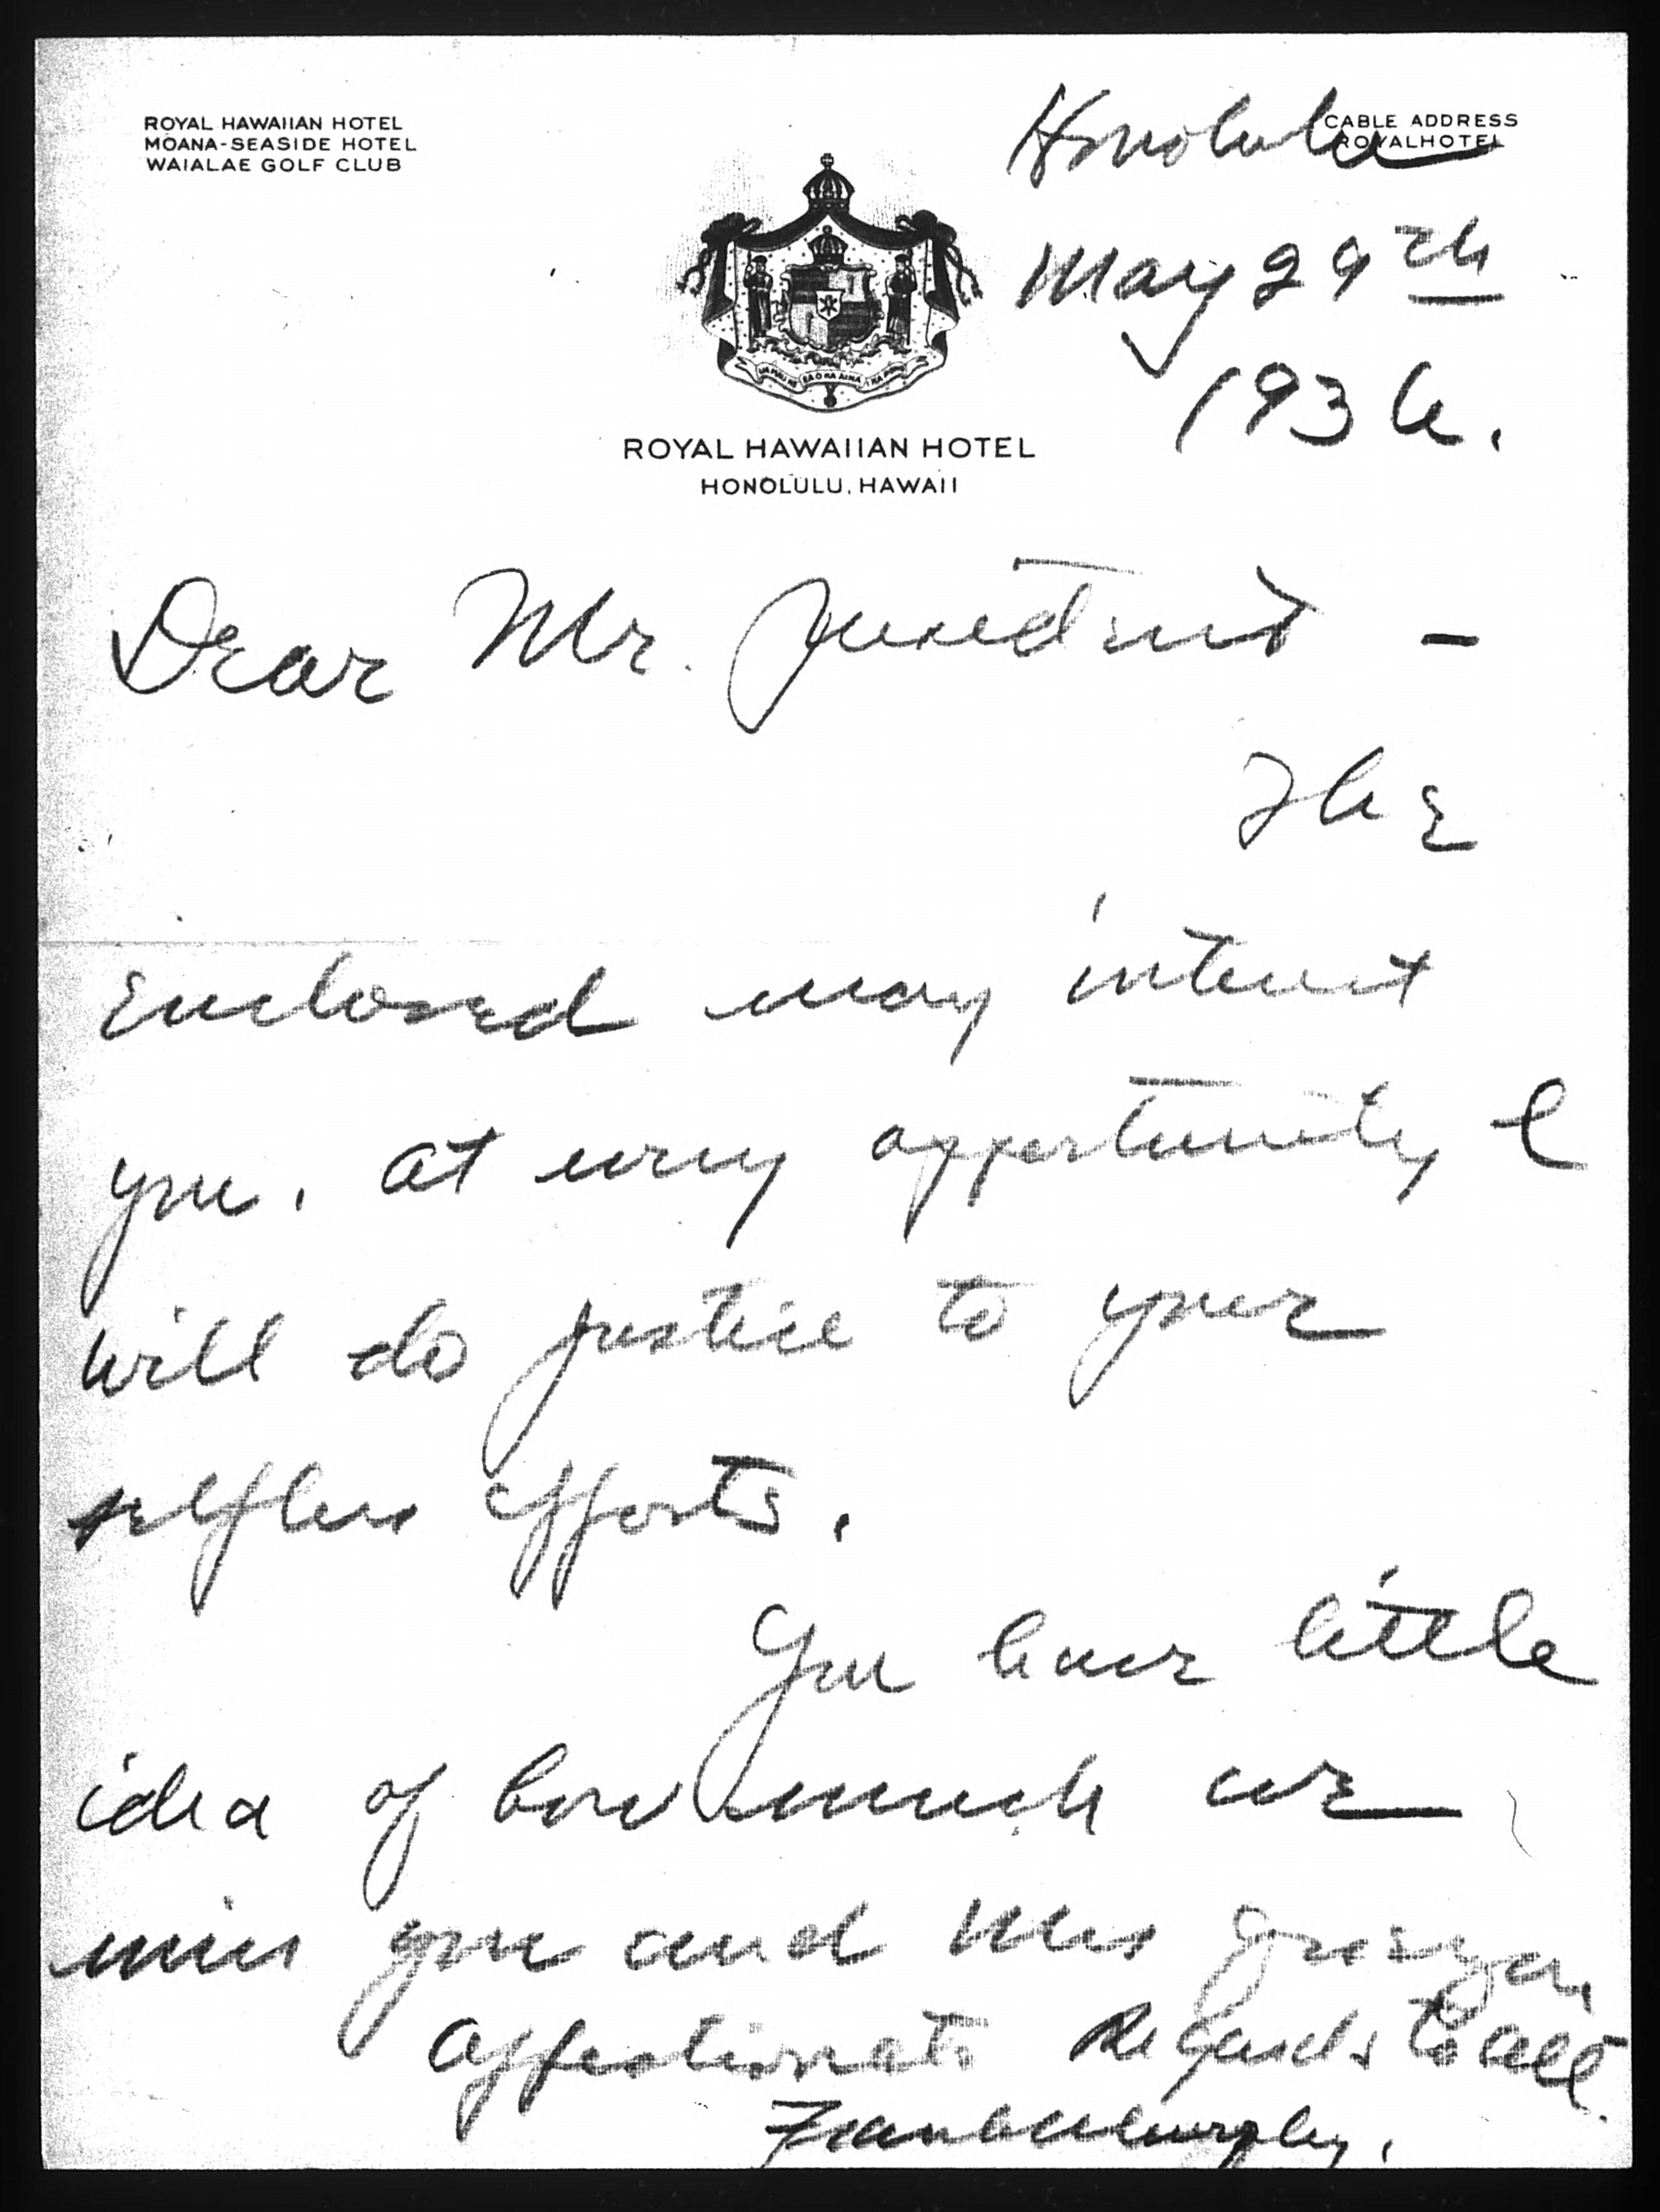 ROYAL HAWAIIAN HOTEL
MOANA-SEASIDE HOTEL
WAIALAE GOLF CLUB
CABLE ADDRESS
ROYALHOTEL
Honolulu
May 29th
1936.
ROYAL HAWAIIAN HOTEL
HONOLULU, HAWAII
Dear Mr. President -
The
enclosed may interest
you. At every opportunity I
will do justice to your
selfless efforts.
You have little
idea of how much we
miss you and Mrs Quezon.
Affectionate Regards to all.
Frank Murphy.